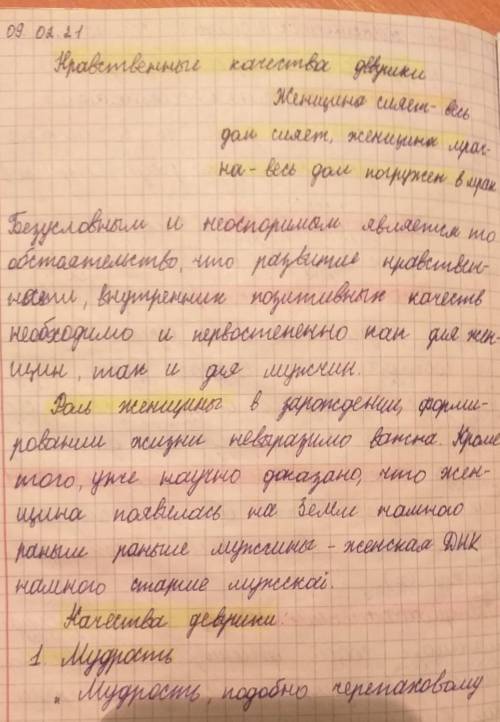 09.02.21
Нравственные качества деврики
Женщина сияет - весь
дом сияет, женщина мрач-
на - весь дом погружен в мрак
Безусловным и неоспоримом является то
обстаятельство, что развитие нравствен-
ности, внутренних позитивных качеств
необходимо и первостепенно как для жен-
щин, так и для мужчин.
Роль женщины в зарождении, форми-
ровании жизни невыразимо важна. Кроме
того, уже научно доказано, что жен-
щина появелась на Земле намного
раньше раньше мужчины - женская ДНК
намного старше мужской.
Качества деврики:
1 Мудрость
„ Мудрость, подобно черепаховому